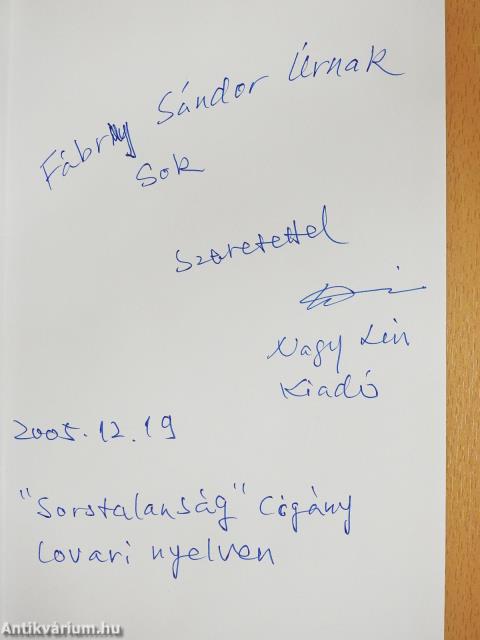 Fábry Sándor Úrnak
Sok
Szeretettel
Nagy Lin
Kiadó
2005.12.19
"Sorstalanság" Cigány
Lovari nyelven
Antikvárium.hu